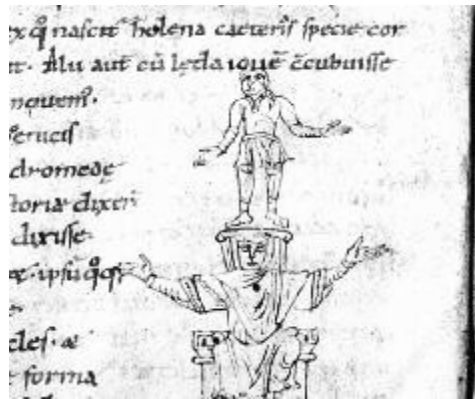 nascit̄ helena caeteris specie cor
Alii aut̄ cū lęda iouē c̄cubuisse
nquem.
erucis
dromedę
toria dixer̄
dixisse.
ipsūq̊q;
cles. æ
forma